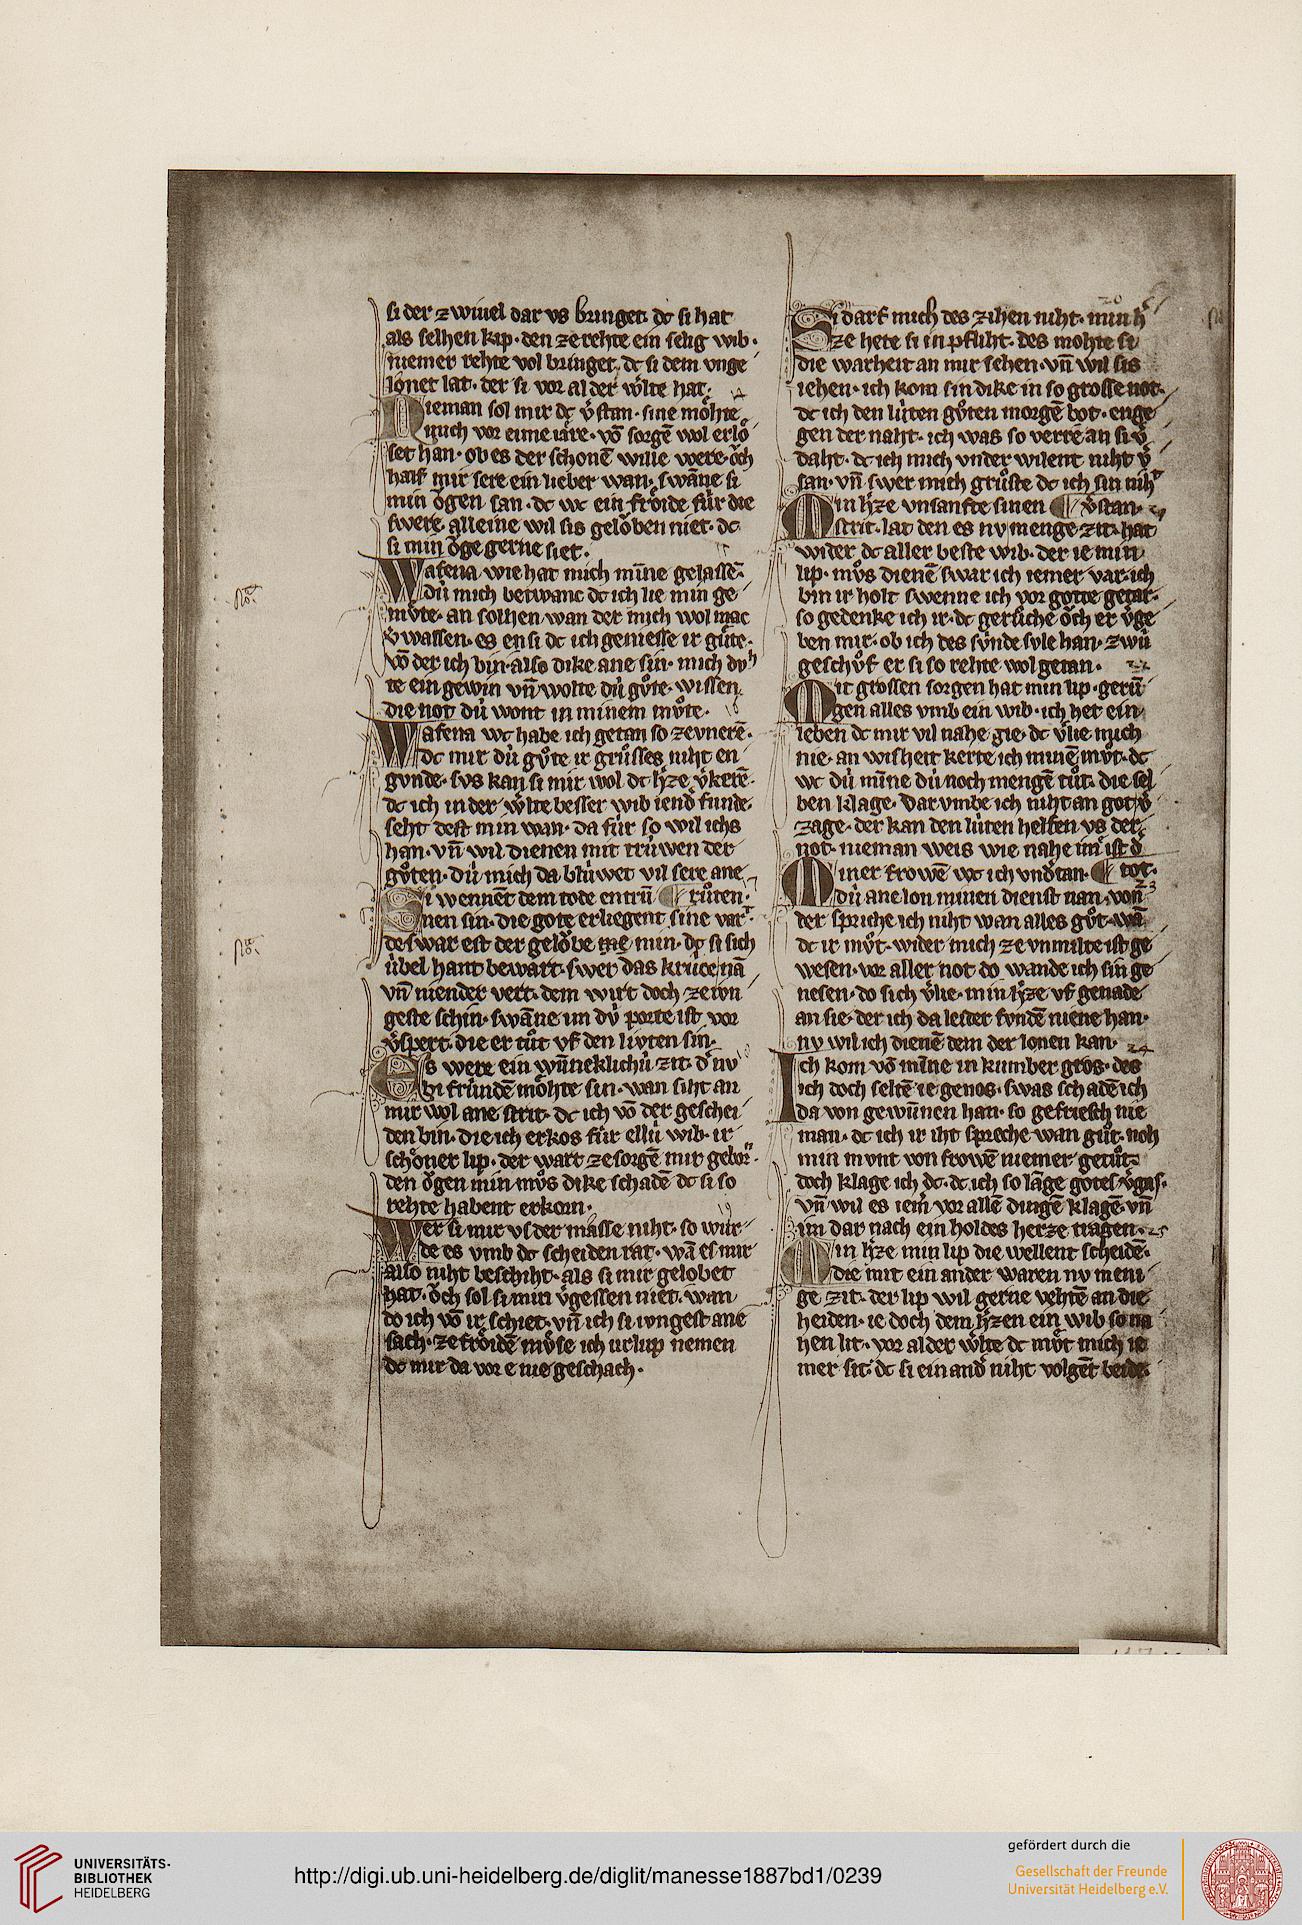 si der zwiuel dar vs bringet. dc si hat
als selhen kip. den ze rehte ein selig wib.
niemer rehte vol bringet. dc si dem vnge
lonet lat. der si vor al der wͤlte hat.
Nieman sol mir dc v̾stan. sine moͤhte
mich vor eime iare. vō sorgē wol erloͤ
set han. ob es der schonē wille were. oͮch
half mir sere ein lieber wan. swāne si
min oͮgen san. dc wc ein froͤide fúr die
swere alleine wil sis geloͮben niet. dc
si min oͮge gerne siet.
Wafena wie hat mich mīne gelassē.
dú mich betwanc dc ich lie min ge
muͤte. an solhen wan der mich wol mac
v̾wassen. es en si dc ich geniesse ir guͤte.
vō der ich bin. also dike ane sin. mich dvh
te ein gewin vn̄ wolte dú guͦte. wissen
die not dú wont in minem muͦte.
Wafena wc habe ich getan so ze vnerē.
dc mir dú guͦte ir gruͦsses niht en
gvnde. svs kan si mir wol dc h̾ze v̾kerē.
dc ich in der wͤlte besser wib iend̾ funde.
seht dest min wan. da fúr so wil ichs
han. vn̄ wil dienen mit trúwen der
guͦten. dú mich da blúwet vil sere ane
Si wennēt dem tode entrū ¶ ruͦten.
nen sin. die gote erliegent sine var
de swar est der geloͮbe min. dc si sich
úbel hant bewart. swer das kruce nā
vn̄ niender vert. dem wirt doch ze ivn
geste schin. swāne im dú porte ist vor
v̾spert. die er tuͦt vf den livten sin.
Es were ein wūneklichú zit. d̾ nv
bi frúndē moͤhte sin. wan siht an
mir wol ane strit. dc ich vō der geschei
den bin. die ich erkos fúr ellú wib. ir
schoͤner lip. der wart ze sorgē mir geborn.
den oͮgen min muͦs dike schadē dc si so
rehte habent erkorn.
Wer si mir vs der māsse niht. so wúr
de es vmb dc scheiden rat. wā es mir
also niht beschiht. als si mir gelobet
hat. oͮch sol si min v̾gessen niet. wan
do ich vō ir schiet. vn̄ ich si ivngest ane
sach. ze froͤidē muͤse ich urlup nemen
dc mir da vor e nie geschach.
Si darf mich des zihen niht. min h̾
ze hete si in pfliht. des mohte si
die warheit an mir sehen. vn̄ wil sis
iehen. ich kom sin dike in so grosse not.
dc ich den lúten guͦten morgē bot. enge
gen der naht. ich was so verre an si v̾
daht. dc ich mich vnder wilent niht v̾
san. vn̄ swer mich gruͦste dc ich sin niht
Min h̾ze vnsanfte sinen ¶ v̾stan.
strit. lat den es nv menge zit. hat
wider dc aller beste wib. der ie min
lip. muͦs dienē swar ich iemer var. ich
bin ir holt swenne ich vor gotte getar.
so gedenke ich ir. dc geruͦche oͮch er v̾ge
ben mir. ob ich des súnde svle han. zwú
geschuͦf er si so rehte wol getan.
Mit grossen sorgen hat min lip. gerū
gen alles vmb ein wib. ich het ein
leben dc mir vil nahe gie. dc v̾lie mich
nie. an wisheit kerte ich minē muͦt. dc
wc dú mīne dú noch mengē tuͦt. die sel
ben klage. Dar vmbe ich niht an got v̾
zage. der kan den lúten helfen vs der
not. nieman weis wie nahe im ist d̾
Miner frowē wc ich vnd̾tan. ¶ tot.
dú ane lon minen dienst nan. von
der spriche ich niht wan alles guͦt. wā
dc ir muͦt. wider mich ze vnmilte ist ge
wesen. vor aller not do wande ich sin ge
nesen. do sich v̾lie. min h̾ze vf genade
an sie. der ich da leider fvndē niene han.
nv wil ich dienē dem der lonen kan.
Ich kom vō mīne in kumber gros. des
ich doch seltē ie genos. swas schadē ich
da von gewūnen han. so gefriesch nie
man. dc ich ir iht spreche wan guͦt. noh
min mvnt von frowē niemer getuͦt.
doch klage ich dc. dc ich so lāge gotes v̾gas.
vn̄ wil es iem̾ vor allē dingē klagē. vn̄
im dar nach ein holdes herze tragen.
Min h̾ze min lip die wellent scheidē.
die mit ein ander waren nv meni
ge zit. der lip wil gerne vehtē an die
heiden. ie doch dem h̾zen ein wib so na
hen lit. vor al der wͤlte dc muͤt mich ie
mer sit. dc si ein and̾ niht volgēt beide.
UNIVERSITÄTS-
BIBLIOTHEK
HEIDELBERG
http://digi.ub.uni-heidelberg.de/diglit/manesse1887bd1/0239
gefördert durch die
Gesellschaft der Freunde
Universität Heidelberg e.V.